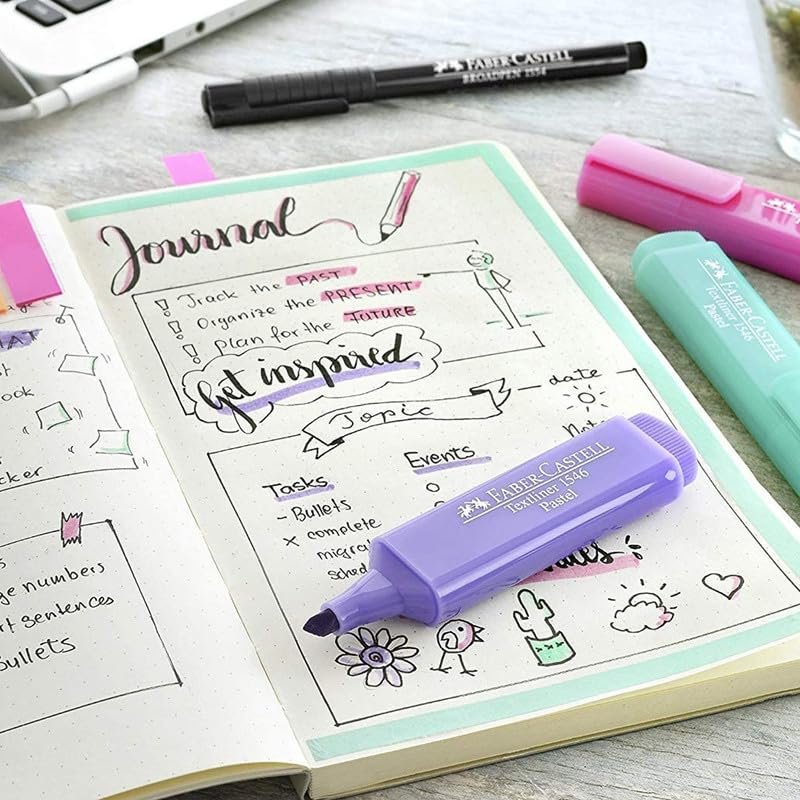 FABER-CASTELL
BROADPEN 1554
Journal
! Track the PAST
! Organize the PRESENT
! Plan for the FUTURE
Get inspired
Topic
date
Tasks
Events
- Bullets
x complete
FABER-CASTELL
Textliner 1546
Pastel
FABER-CASTELL
Textliner 1546
Pastel
ook
cker
ge numbers
rt sentences
Bullets